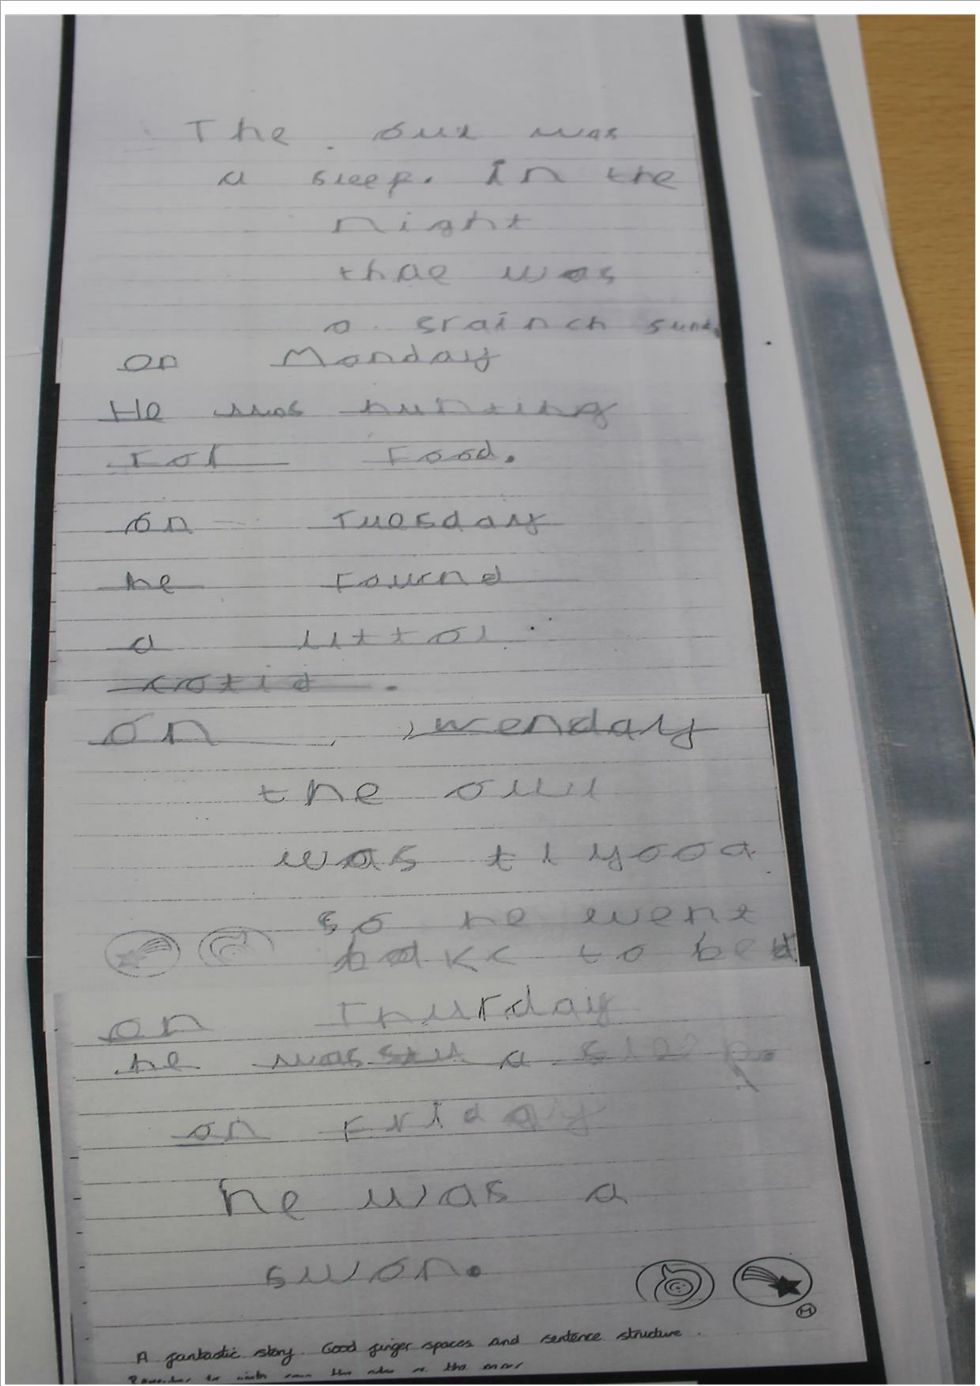 The oul was
a sleep. In the
night
thae was
a srainch sund
on Monday
He was hunting
for food.
on Tuesday
he found
a littol
on wenday
the oul
was tiyood
so he went
bakc to bed
on Thurday
he was a sleep.
on Friday
he was a
swon.
A fantastic story. Good finger spaces and sentence structure.